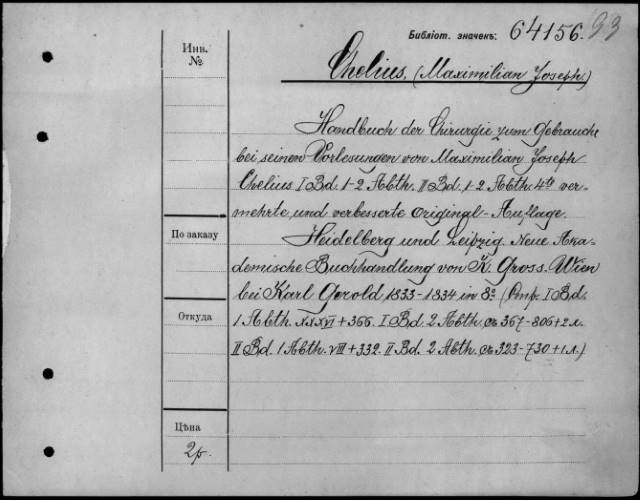 Библіот. значекъ: 64156. 93
Инв.
№
Chelius, (Maximilian Joseph)
Handbuch der Chirurgie zum Gebrauche
bei seinen Vorlesungen von Maximilian Joseph
Chelius I Bd. 1-2 Abth. II Bd. 1-2 Abth. 4te ver-
mehrte, und verbesserte Original-Auflage.
По заказу
Heidelberg und Leipzig. Neue Aka-
demische Buchhandlung von K. Gross. Wien
bei Karl Gerold 1833-1834 in 8° (Стр. I Bd.
Откуда
1 Abth. XXXVI + 366. I Bd. 2 Abth. съ 367-806+2 л.
II Bd. 1 Abth. VIII + 332. II Bd. 2 Abth. съ 323-730+1 л.)
Цѣна
2р.